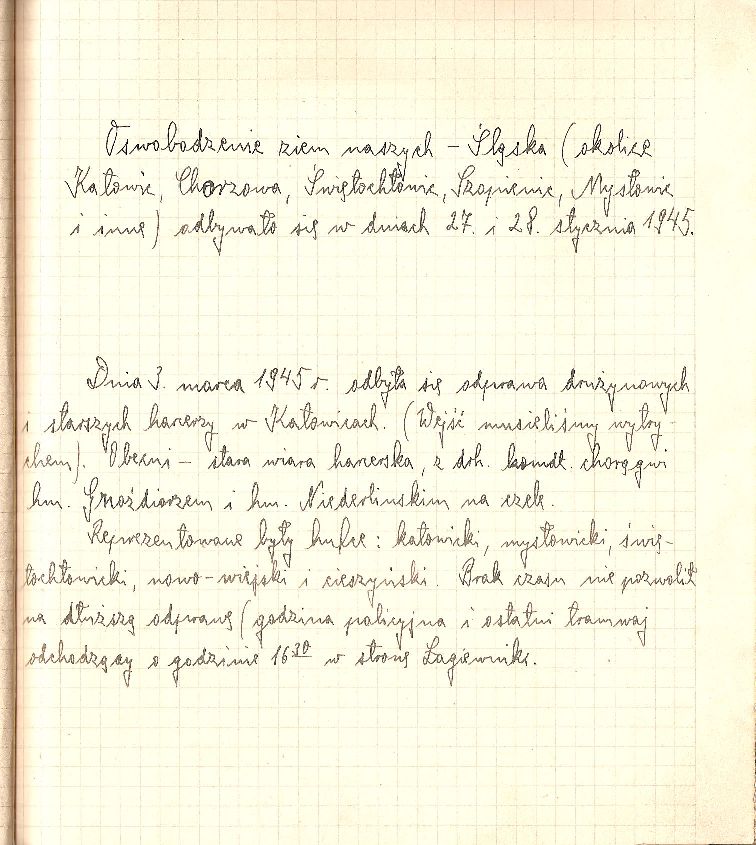 Oswobodzenie ziem naszych – Śląska (okolice
Katowic, Chorzowa, Świętochłowic, Szopienic, Mysłowic
i inne) odbywało się w dniach 27. i 28. stycznia 1945.
Dnia 3. marca 1945 r. odbyła się odprawa drużynowych
i starszych harcerzy w Katowicach. (Wejść musieliśmy wytry-
chem). Obecni – stara wiara harcerska, z drh. komdt. chorągwi
hm. Gnoździorzem i hm. Niederlinskim na czele.
Reprezentowane były hufce: katowicki, mysłowicki, świę-
tochłowicki, nowo-wiejski i cieszyński. Brak czasu nie pozwolił
na dłuższą odprawę (godzina policyjna i ostatni tramwaj
odchodzący o godzinie 16³⁰ w stronę Łagiewnik.